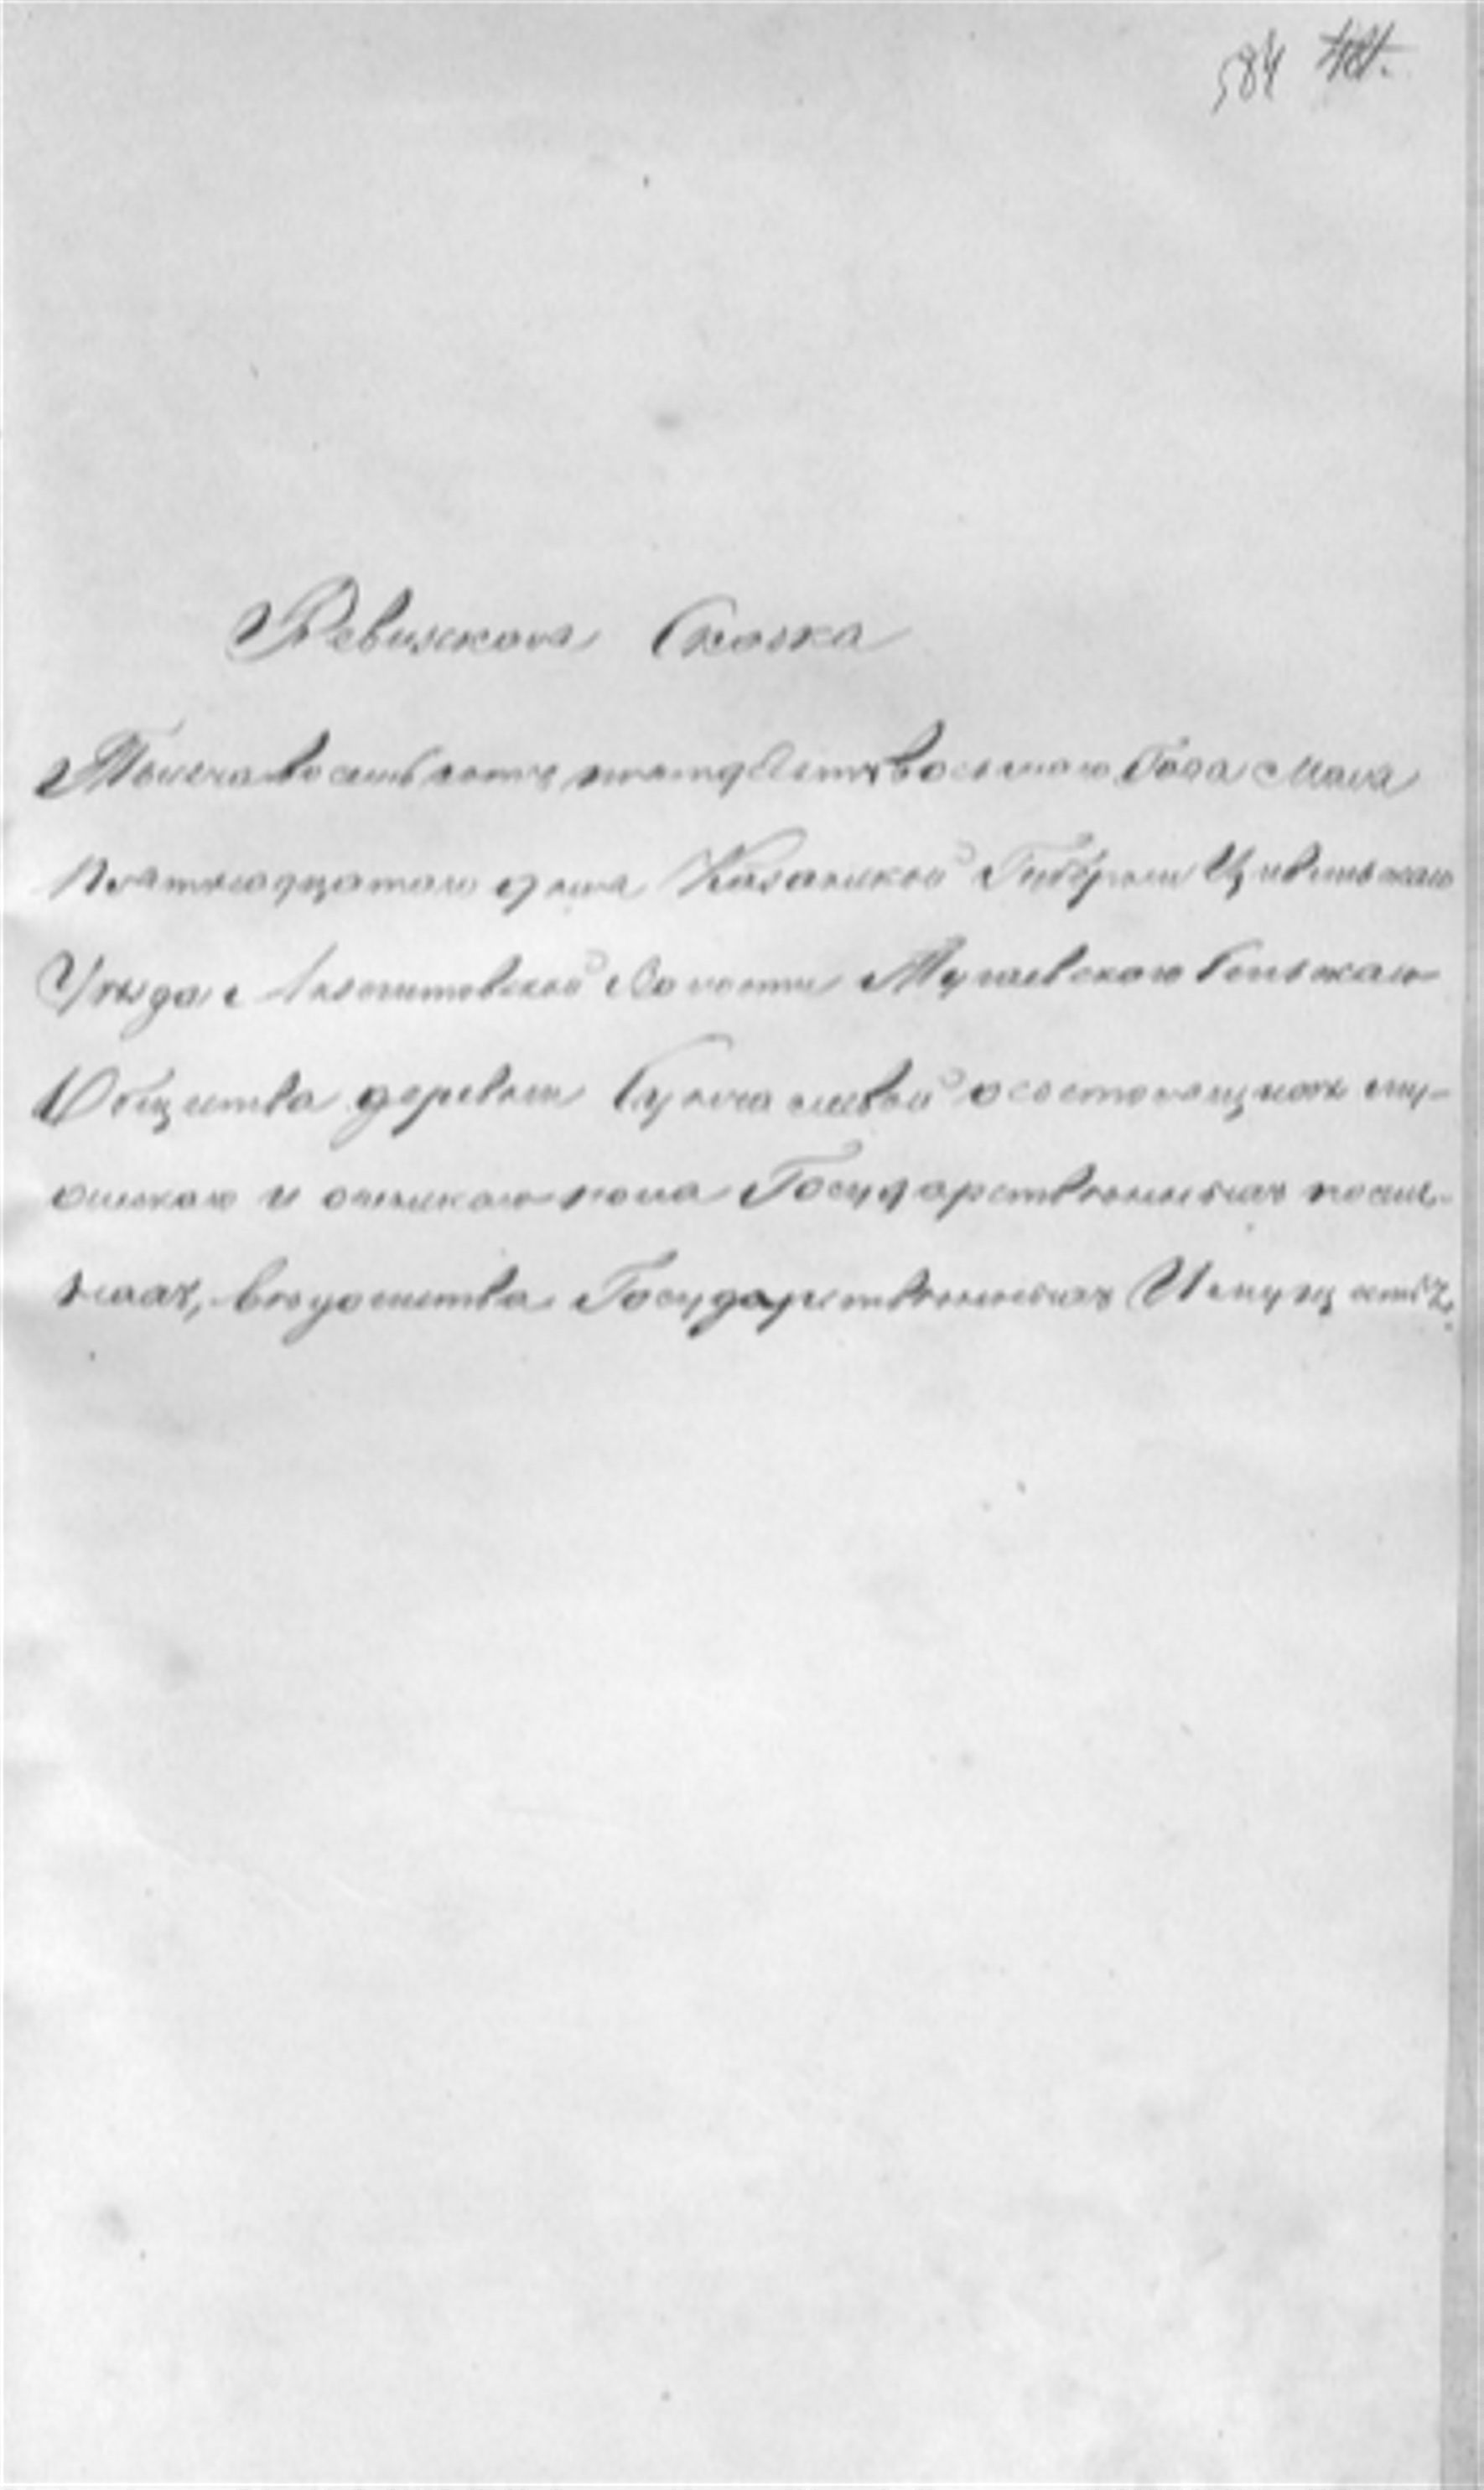 584
Ревизская Сказка
Тысяча восемь сотъ пятьдесятъ восьмаго Года Мая
пятнадцатаго дня Казанской Губерніи Цивильскаго
Уѣзда Волости Сельскаго
Общества деревни о состоящихъ му-
жскаго и женскаго пола Государственныхъ посел-
янахъ, вѣдомства Государственныхъ Имуществъ.